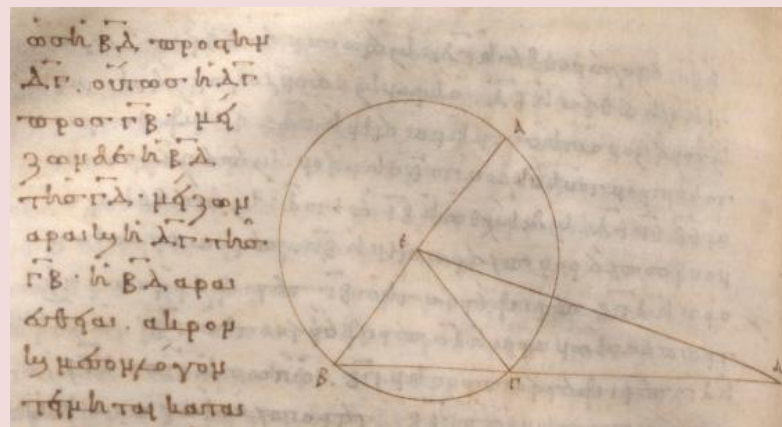 ὡσ ἡ ΒΔ προσ τὴν
ΔΓ. οὕτωσ ἡ ΔΓ
προσ ΓΒ μεί
ζων δὲ ἡ ΒΔ
τῆσ ΓΔ· μείζων
ἄρα καὶ ἡ ΔΓ τῆσ
ΓΒ· ἡ ΒΔ ἄρα
εὐθεῖα. ακρον
καὶ μέσον λόγον
τέτμηται κατα
Α
Ε
Β
Γ
Δ